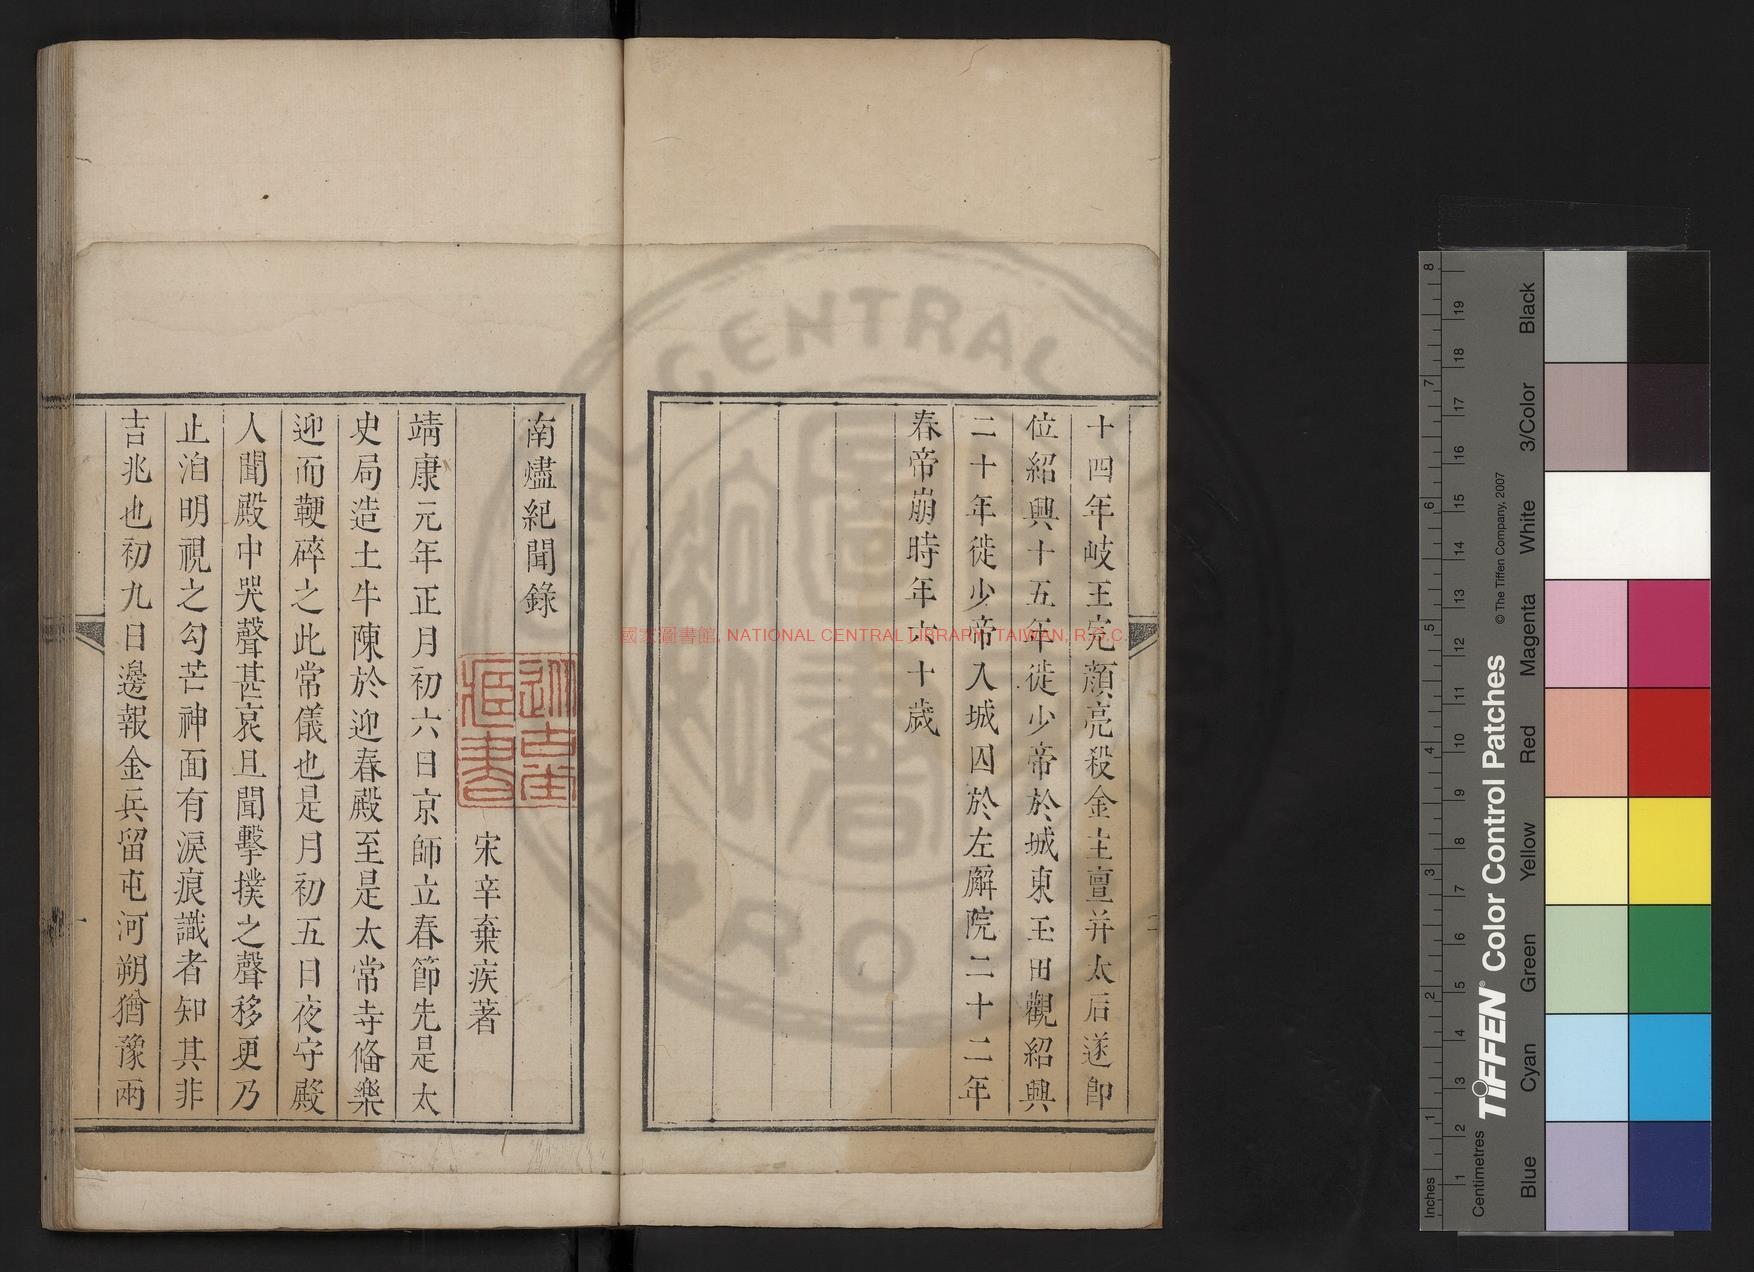 十四年岐王完顏亮殺金主亶并太后遂即
位紹興十五年徙少帝於城東玉田觀紹興
二十年徙少帝入城囚於左廨院二十二年
春帝崩時年六十歲
南燼紀聞錄
宋辛棄疾著
靖康元年正月初六日京師立春節先是太
史局造土牛陳於迎春殿至是太常寺偹樂
迎而鞭碎之此常儀也是月初五日夜守殿
人聞殿中哭聲甚哀且聞擊撲之聲移更乃
止洎明視之勾芒神面有淚痕識者知其非
吉兆也初九日邊報金兵留屯河朔猶豫兩
國家圖書館, NATIONAL CENTRAL LIBRARY, TAIWAN, R.O.C.
CENTRAL
Inches
Centimetres
TIFFEN® Color Control Patches
© The Tiffen Company, 2007
Blue
Cyan
Green
Yellow
Red
Magenta
White
3/Color
Black